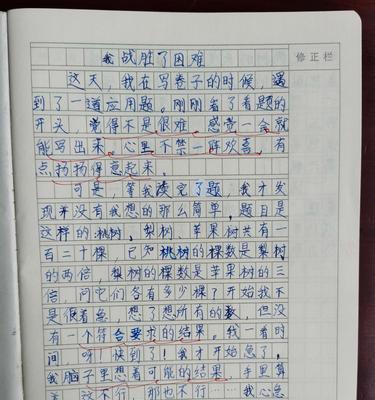 我战胜了困难
修正栏
这天，我在写卷子的时候，遇
到了一道应用题。刚刚看了看题的
开头，觉得不是很难。感觉一会就
能写出来。心里不禁一阵欢喜，有
点扬扬得意起来。
可是，等我读完了题，我才发
现并没有我想的那么简单，题目是
这样的：桃树，梨树、苹果树共有一
百二十棵，已知桃树的棵数是梨树
的两倍，梨树的棵数是苹果树的三
倍，问它们各有多少棵？开始我不
是很着急，想了想所有的数，但没
有一个符合要求的结果。我一看时
间，呀！快到了！我才开始急了，
我脑子里想着可能的结果，手里算
着，这不行，那也不行……我心急